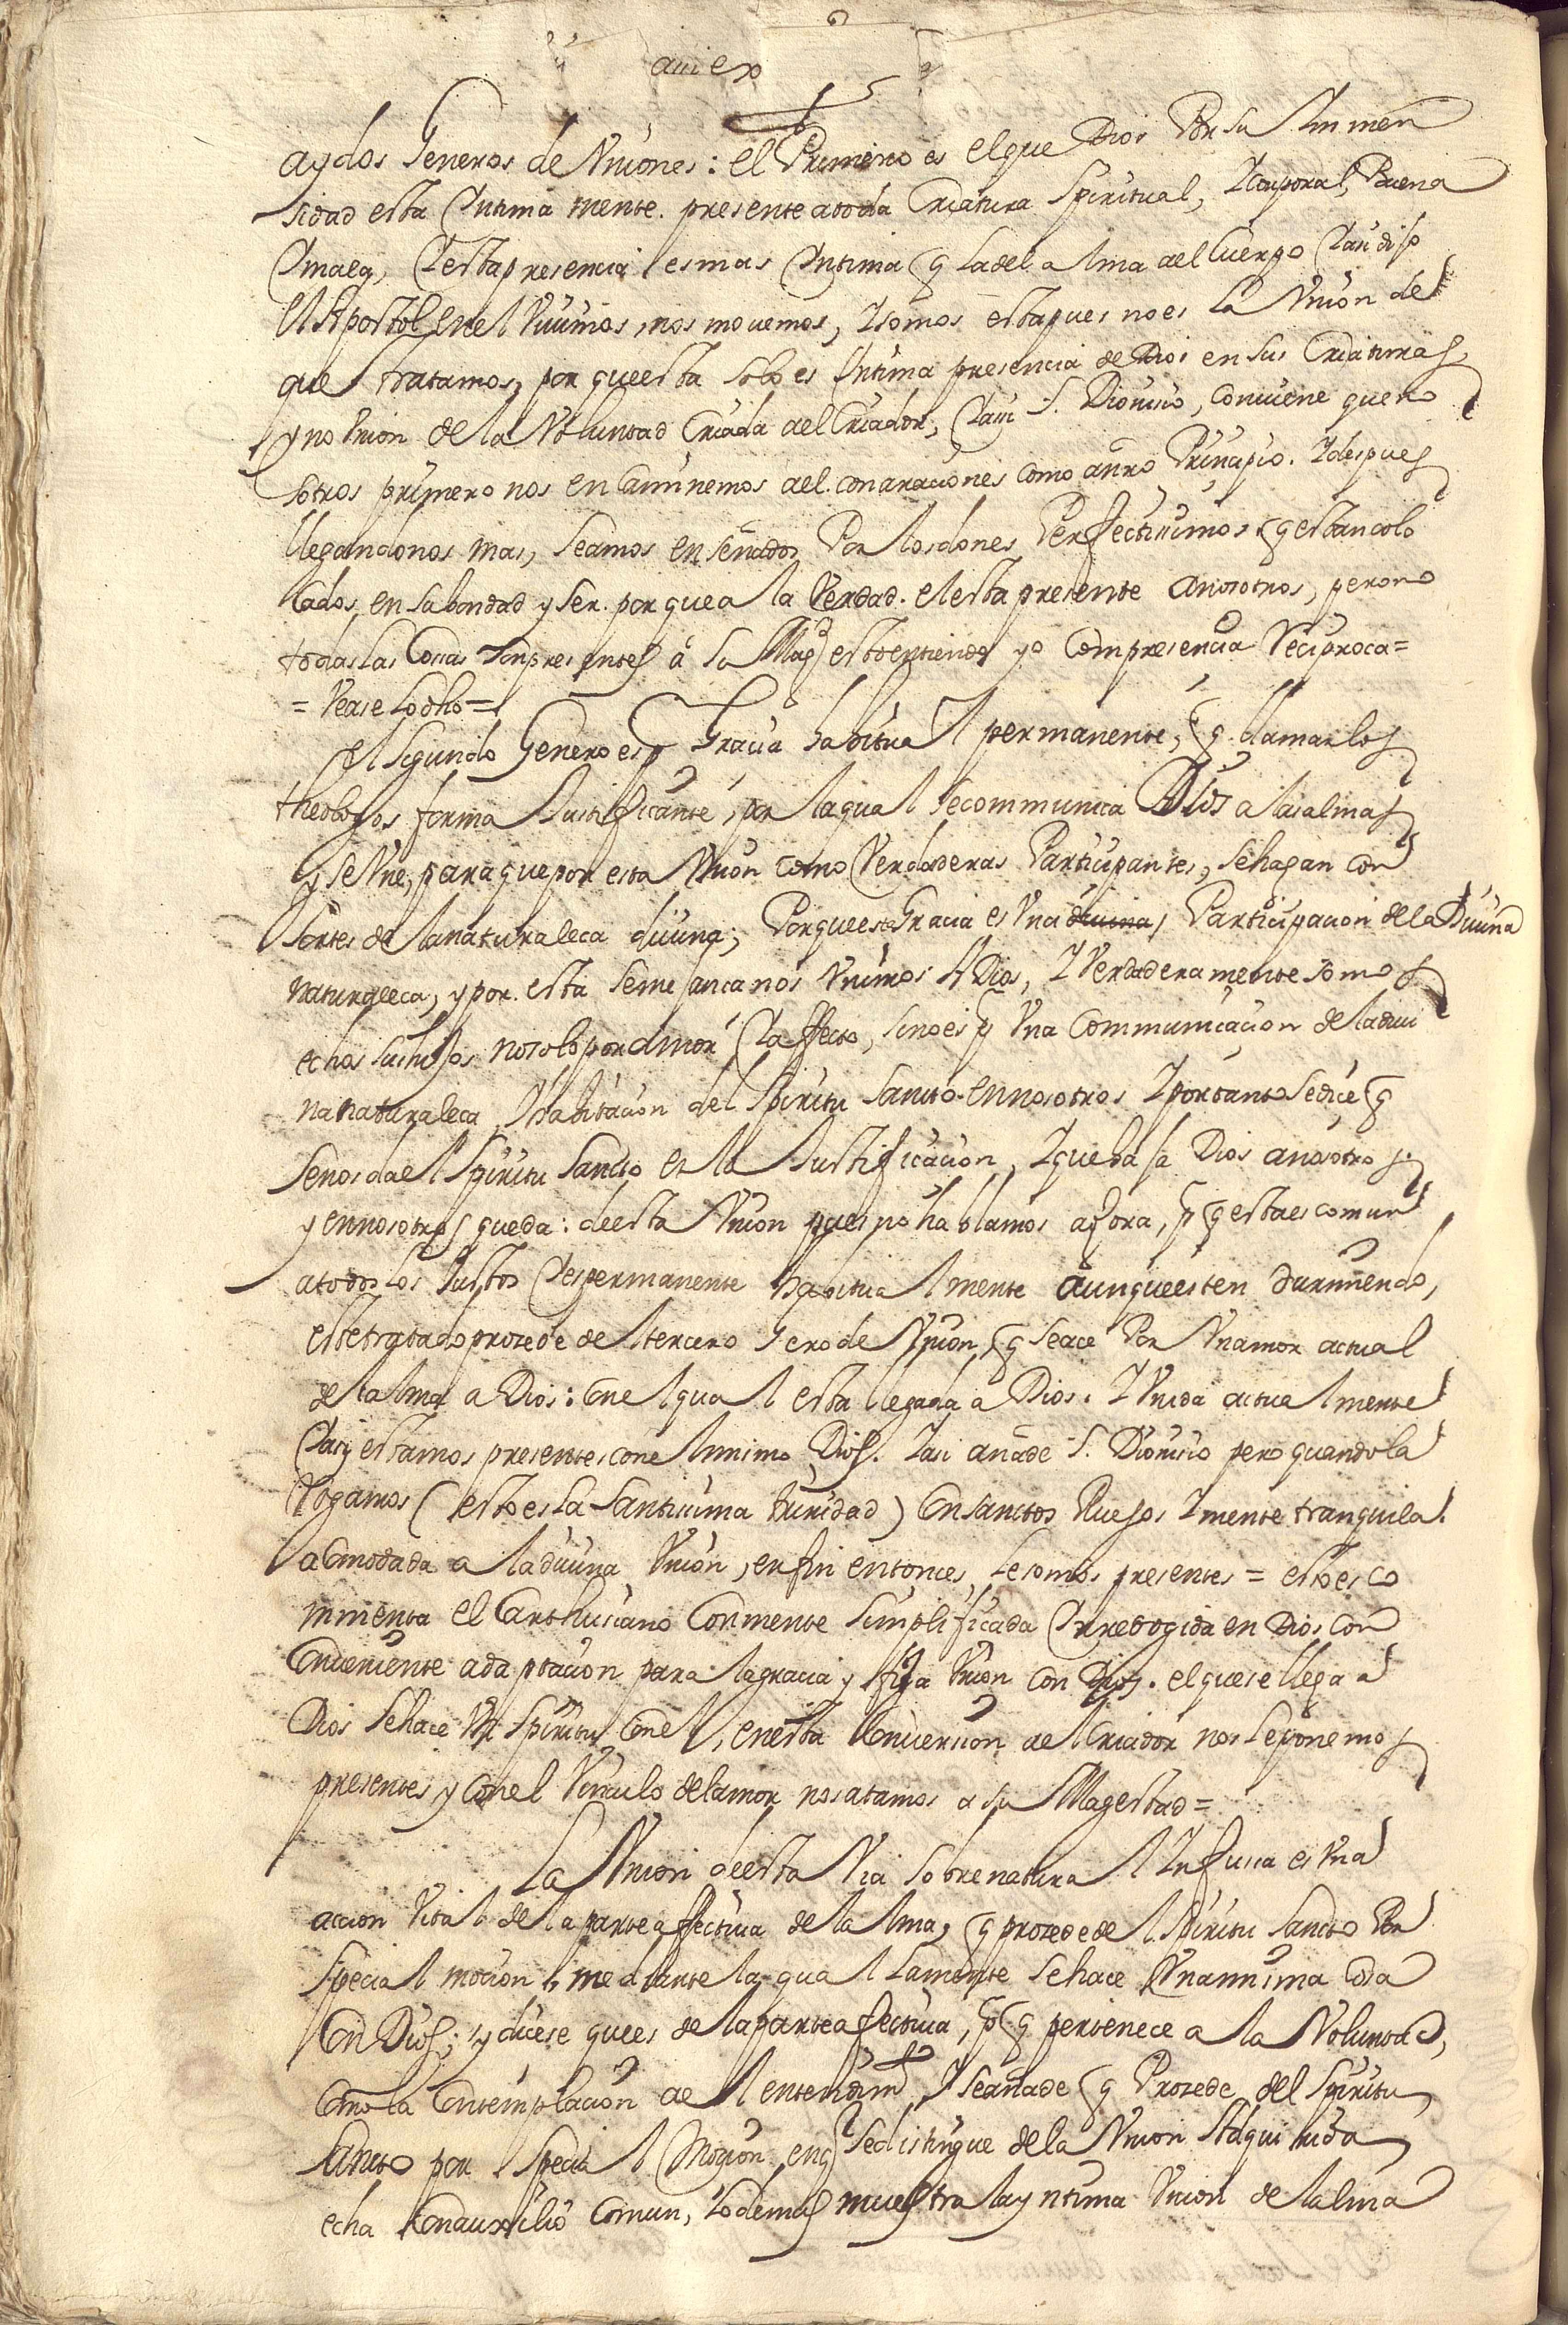 ay dos Generos de Vniones: el Primero es el que Dios Por su Inmen
sidad esta Intima mente. presente a toda Criatura Spiritual, I Corporal, Buena
I mala, I esta presencia es mas Intima q la del alma al Cuerpo I asi dijo
El Apostol en el Viuimos, nos mouemos, I somos esta pues no es la Vnion de
que tratamos, por que esta solo es Intima presencia de Dios en sus Criaturas
y no Vnion de la Voluntad Criada al Criador, I asi S. Dionisio, Conuiene que no
sotros primero nos encaminemos a el. con oraciones Como a nro Principio. I despues
llegandonos mas, seamos enseñados Por los dones Perfectissimos q estan colo
cados, en su bondad y ser. porque a la Verdad. el esta presente a nosotros, pero no
todas las Cosas son presentes á su Magd esto entiendo yo Com presencia Reciproca=
= Vease lo dho =
El segundo Genero es p Gracia habitual permanente, q llaman los
theologos forma Justificante, por la qual se communica Dios a las almas
y se Vne, para que por esta Vnion como Verdaderas Participantes, se hagan con
sortes de la naturaleca diuina; Porque esta Gracia es Vna diuina, Participacion de la Diuina
naturaleca, y por. esta semejanca nos Vnimos A Dios, I Verdaderamente somos
echos sus hijos no solo por amor, I affecto, sino es p Vna Communicacion de la diui
na naturaleca, I habitacion del Spiritu Sancto. en nosotros I por tanto se dice q
se nos da el Spiritu Sancto en la Justificacion, I que baja Dios a nosotros.
y en nosotros queda: de esta Vnion pues no hablamos agora, p q esta es comun
a todos los Justos I es permanente habitual mente aunque esten durmiendo,
este tratado prozede del tercero Gero de Vnion, q se ace Por Vn amor actual
del alma a Dios: Con el qual esta llegada a Dios. I Vnida actual mente
I asi estamos presentes con el mismo Dios. I asi añade S. Dionisio pero quando la
Rogamos (esto es la Santissima trinidad) Con sanctos Ruegos I mente tranquila.
acomodada a la diuina Vnion, en fin entonces, le somos presentes = esto es co
mmenta el Carthusiano Con mente simplificada I recogida en Dios con
Conueniente adaptacion para la gracia y fija Vnion con Dios. el que se llega a
Dios se hace Vn Spiritu Con el, en esta Conuersion al Criador nos le ponemos
presentes y con el Vinculo del amor nos atamos a su Magestad =
La Vnion de esta Via sobrenatural Infussa es Vna
accion Vital de la parte affectiua de la alma, q prozede del Spiritu Sancto Por
special mocion, mediante la qual la mente se hace Vna misma cosa
Con Dios; y dicese que es de la parte afectiua, p q pertenece a la Voluntad,
Como la Contemplacion al entendimto I se añade q Prozede del Spiritu
Sancto por special Mocion en q se distingue de la Vnion Adquirida
echa Con auxilio Comun, lo demas muestra la yntima Vnion de la alma